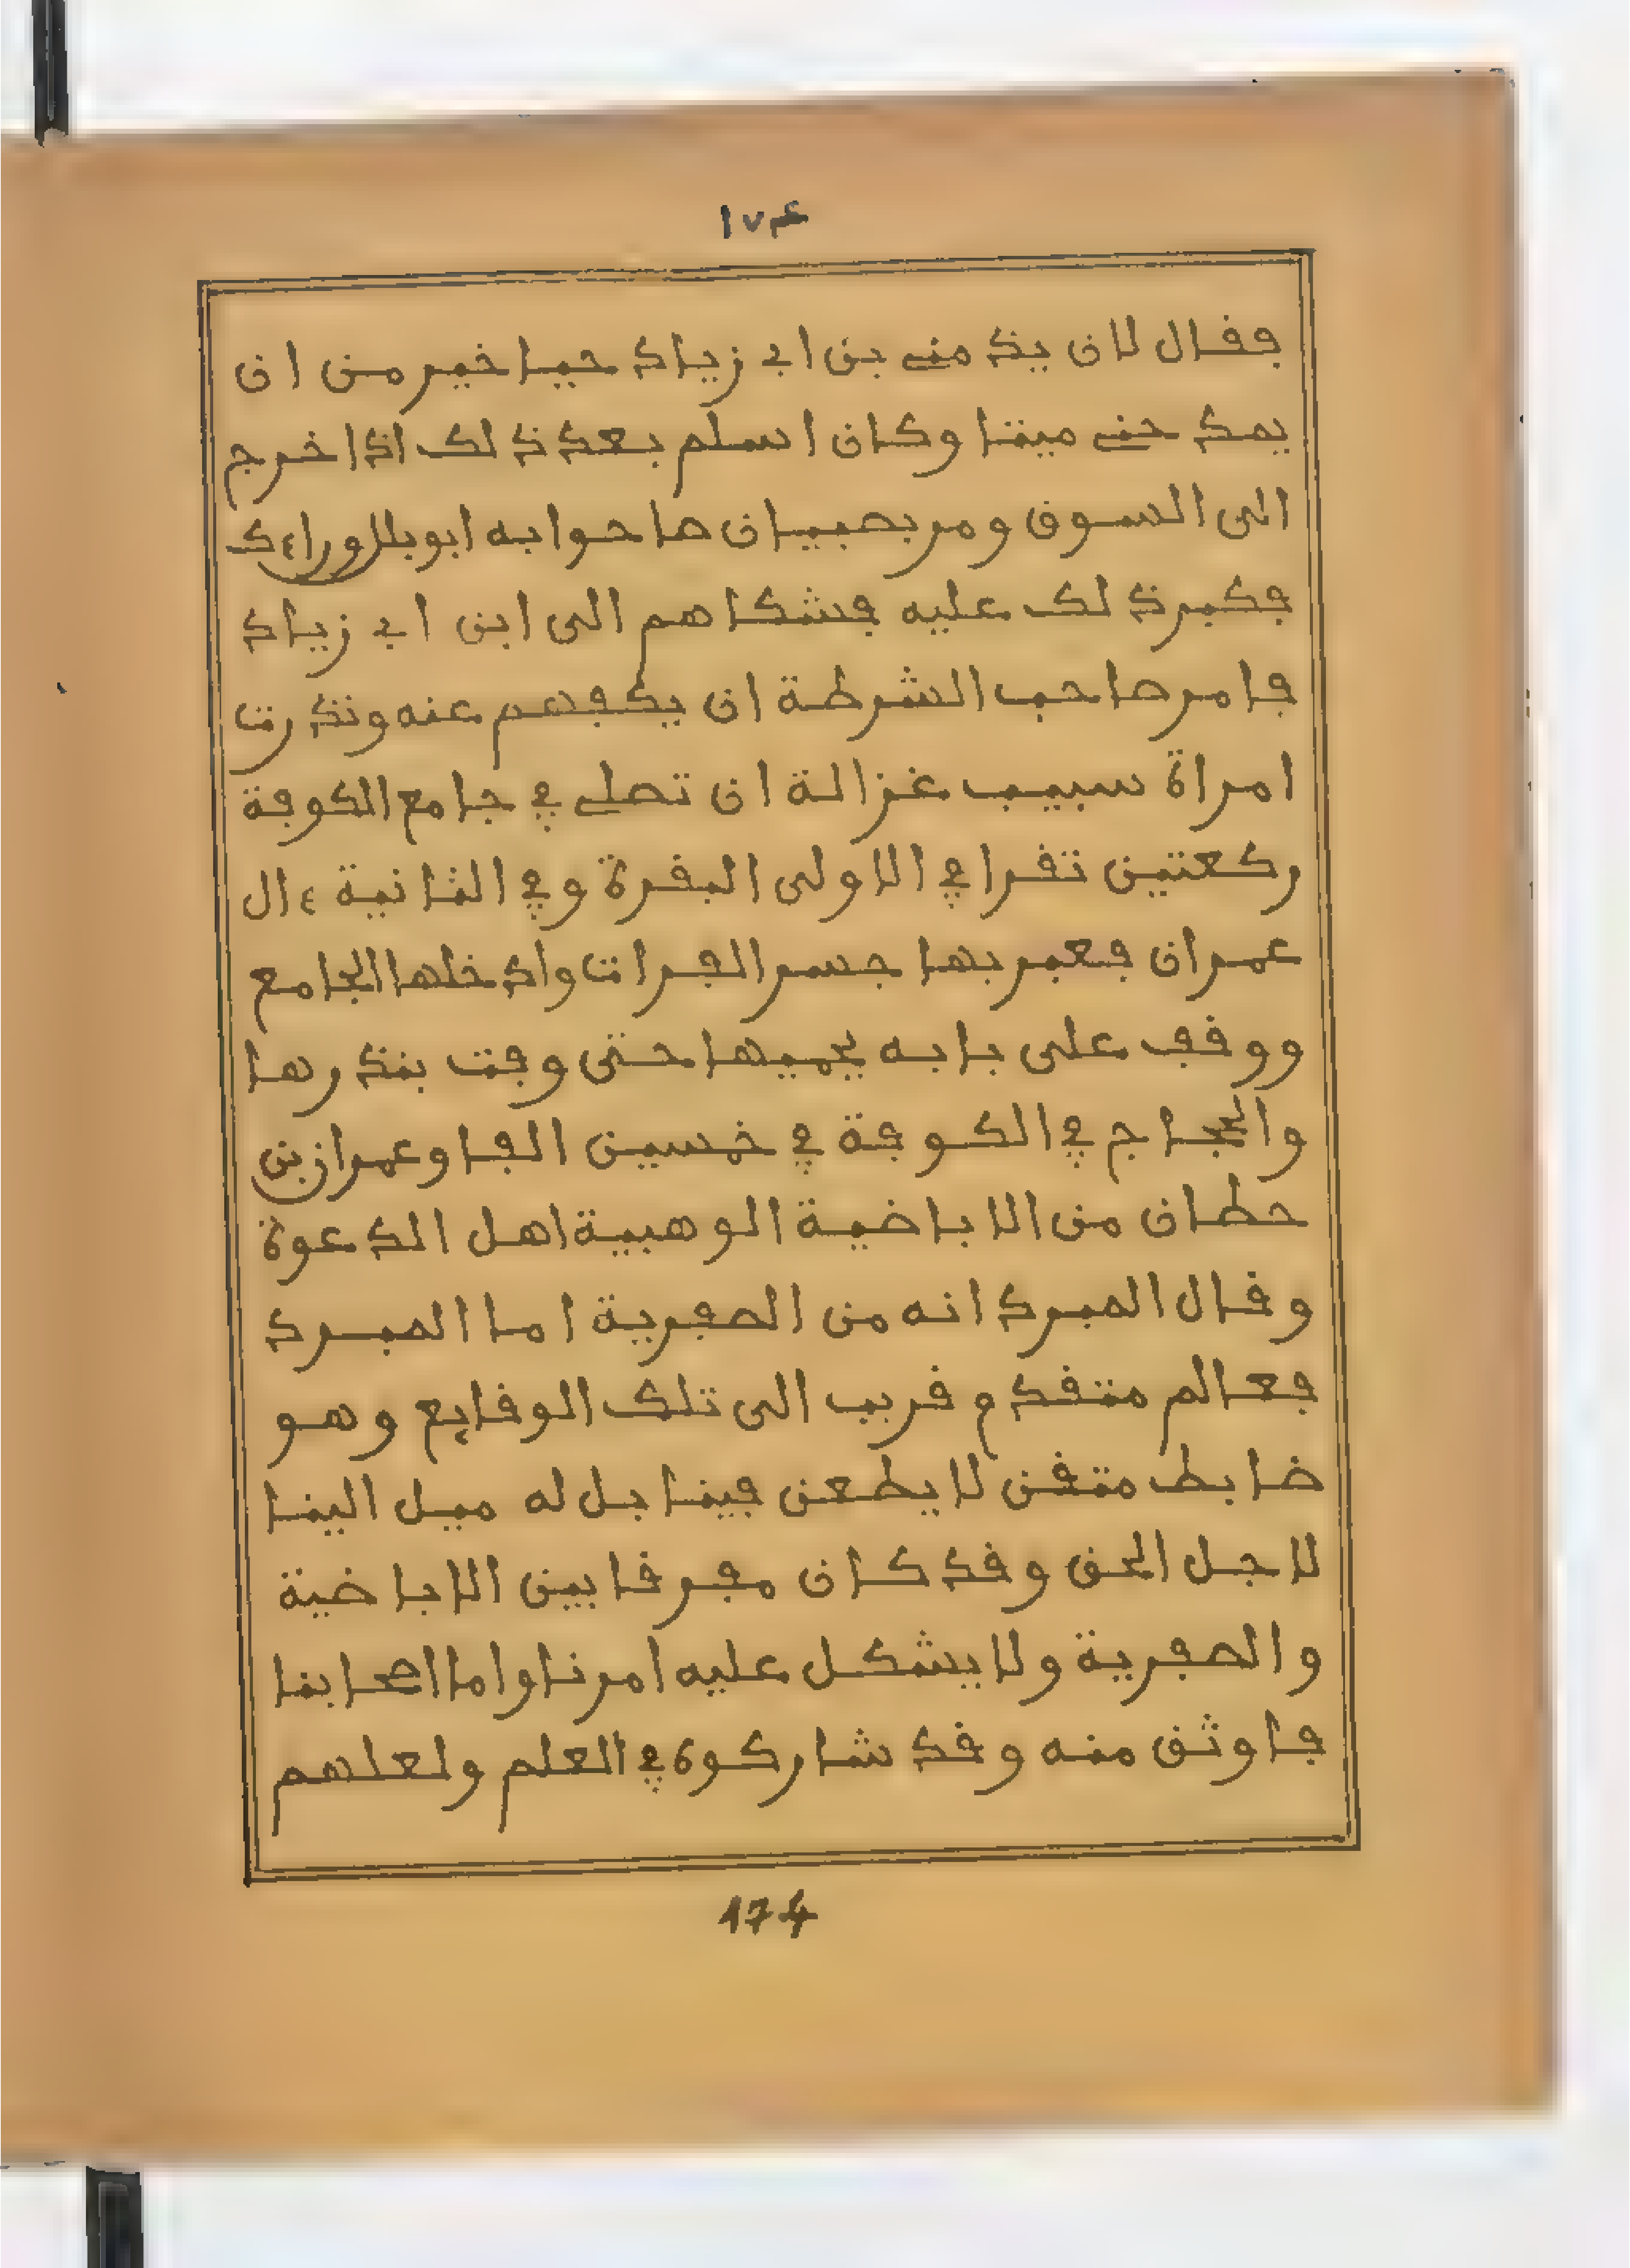 ١٧٤
فقال لان يذمني بن ابي زياد حيا خير من ان
يمدحني ميتا وكان اسلم بعد ذلك اذا خرج
الى السوق ومر بصبيان صاحوا به ابو بلال وراءك
فكبر ذلك عليه فشكاهم الى ابن ابي زياد
فامر صاحب الشرطة ان يكفهم عنه ونذرت
امراة سبيب غزالة ان تصلي في جامع الكوفة
ركعتين تقرا في الاولى البقرة وفي الثانية ءال
عمران فعبر بها جسر الفرات وادخلها الجامع
ووقف على بابه يحميها حتى وفت بنذرها
والحجاج في الكوفة في خمسين الفا وعمران بن
حطان من الاباضية الوهبية اهل الدعوة
وقال المبرد انه من الصفرية اما المبرد
فعالم متقدم قريب الى تلك الوقايع وهو
ضابط متقن لا يطعن فينا بل له ميل الينا
لاجل الحق وقد كان مفرقا بين الاباضية
والصفرية ولا يشكل عليه امرنا واما اصحابنا
فاوثق منه وقد شاركوه في العلم ولعلهم
174